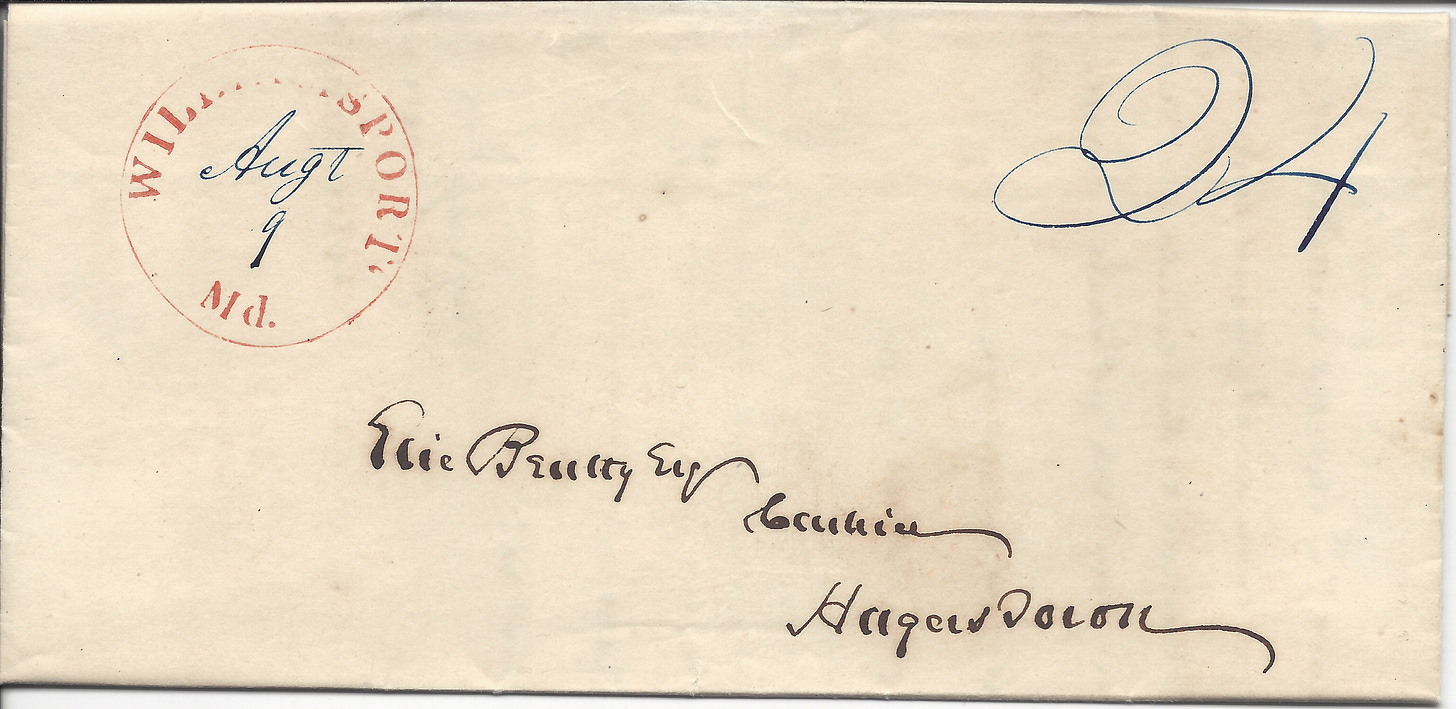 WILLIAMSPORT.
Augt
9
Md.
24
Elie Beatty Esq
Cashier
Hagerstown